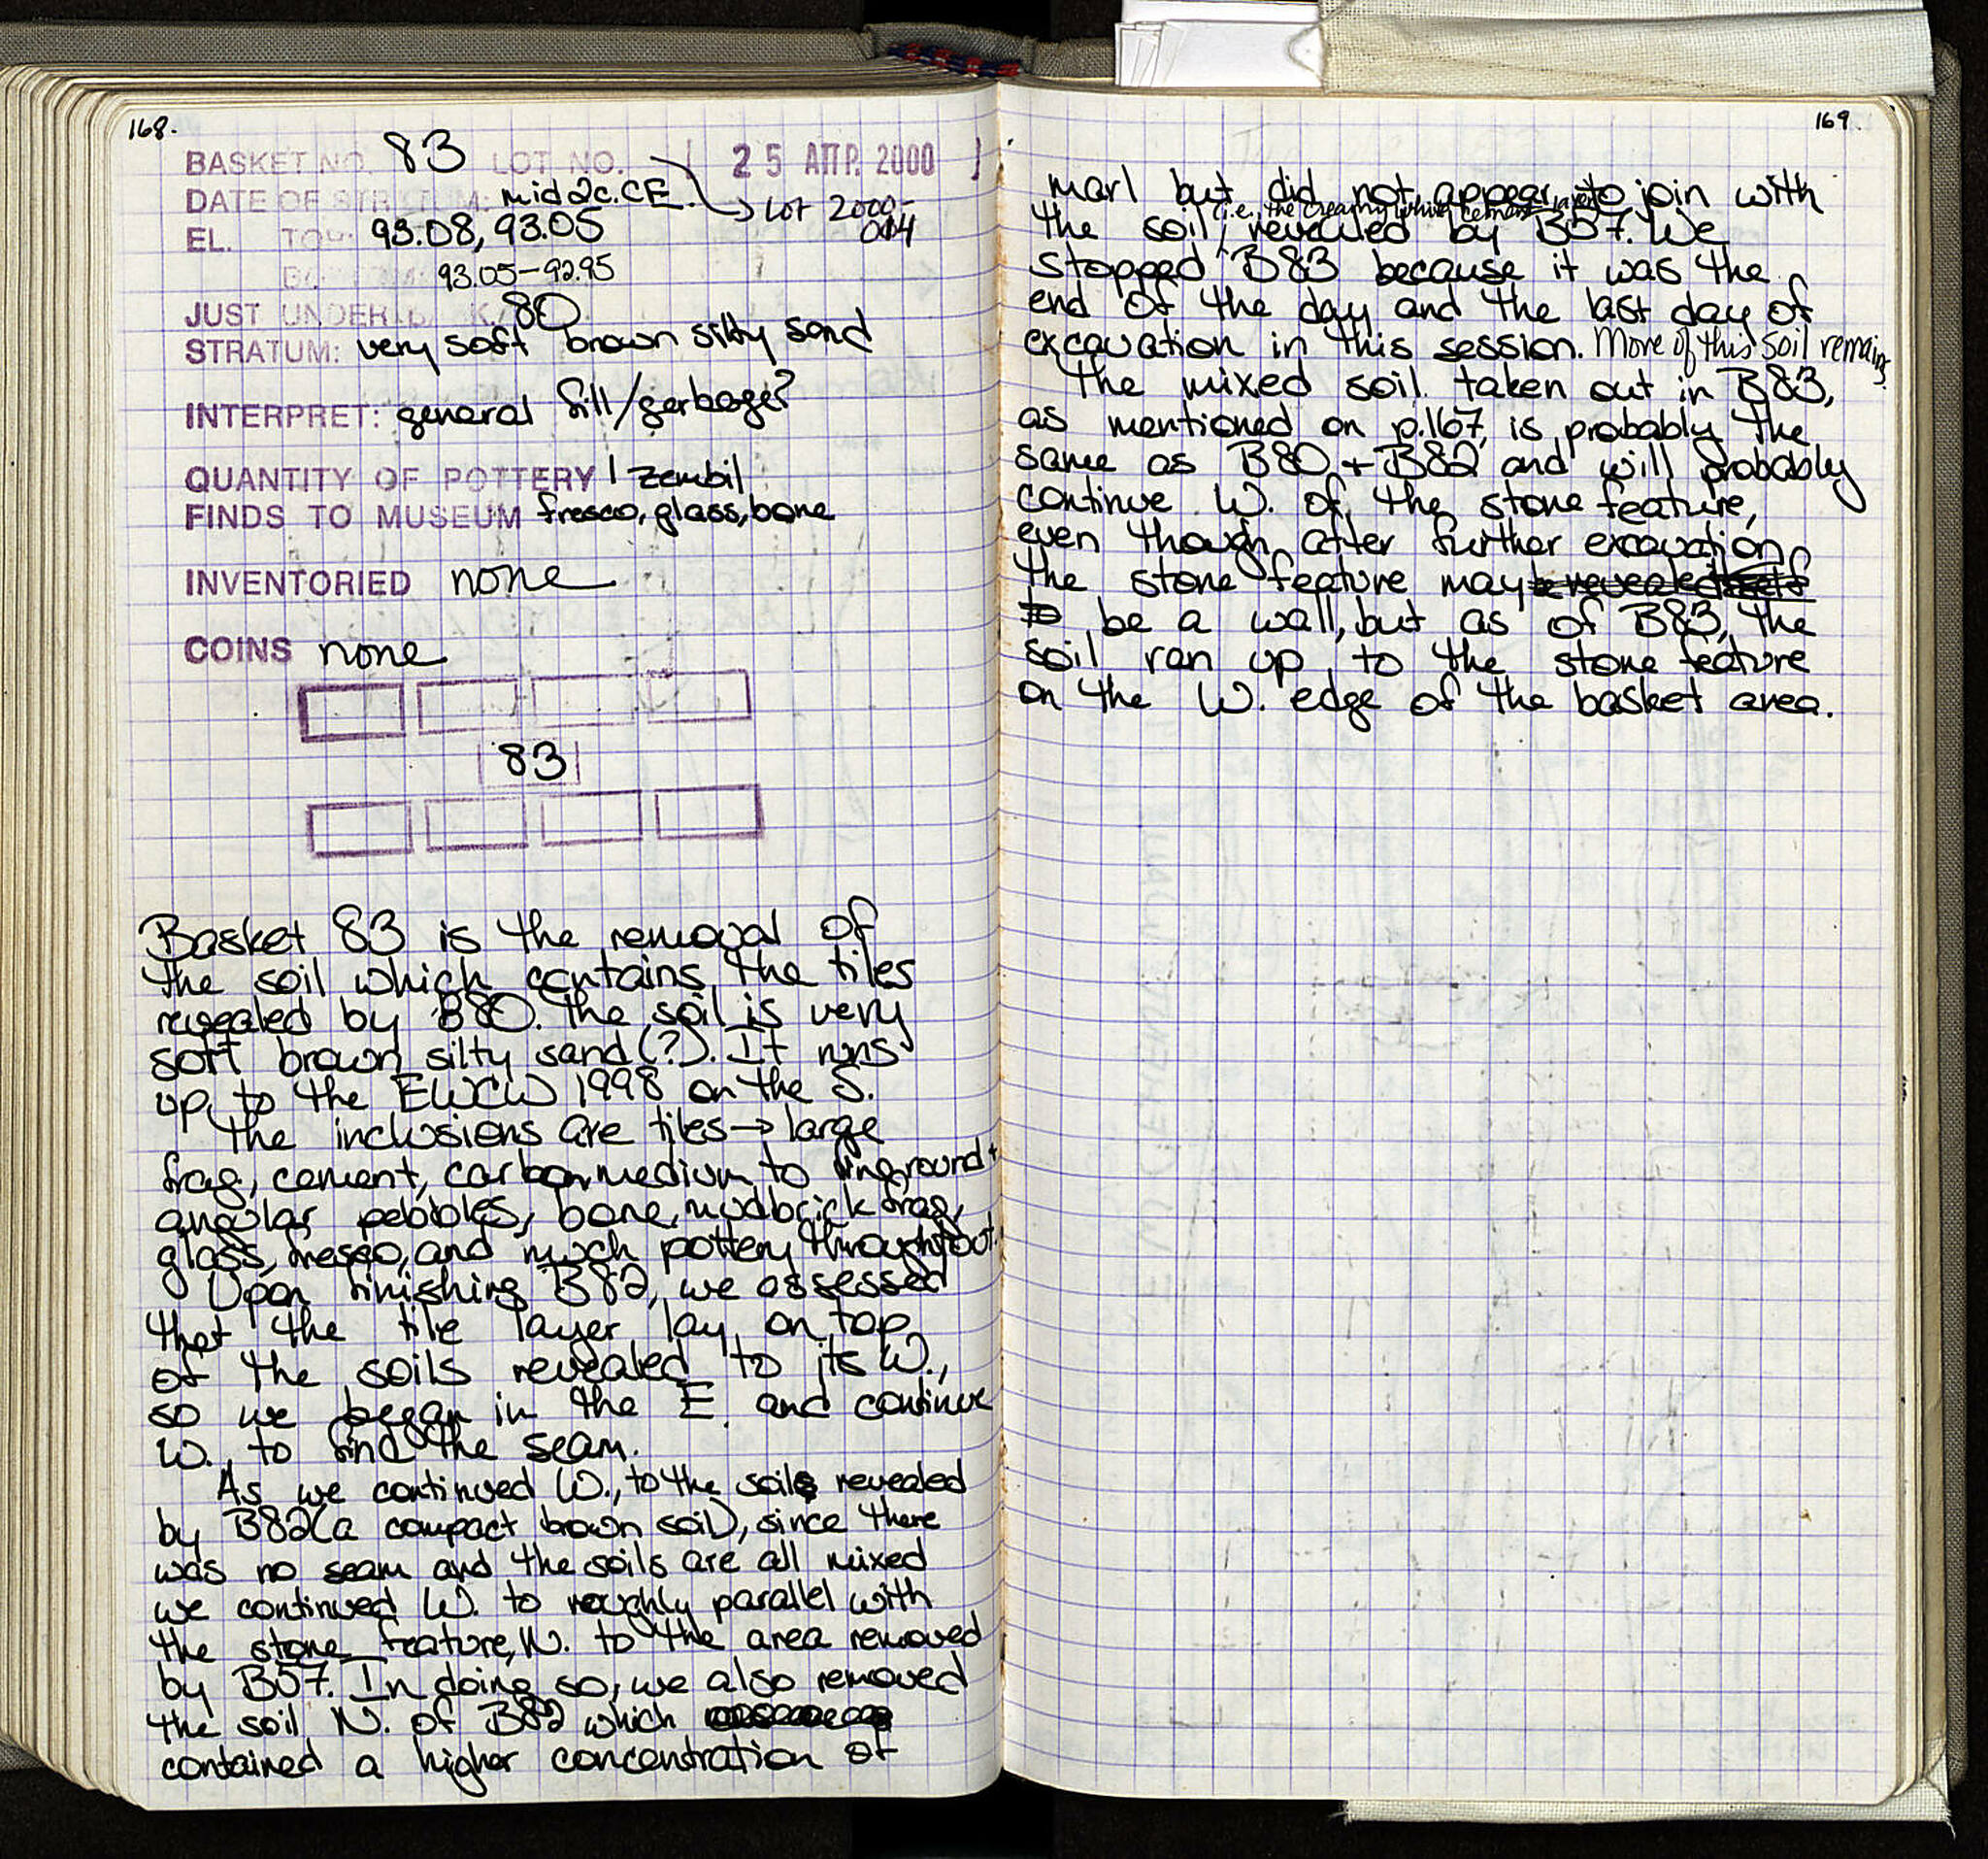 168.
BASKET NO. 83 LOT NO. 25 ΑΠΡ. 2000
DATE OF STRATUM: mid 2c. CE. → Lot 2000-
014
EL. TOP: 93.08, 93.05
BOTTOM: 93.05-92.95
JUST UNDER BASK. 80
STRATUM: very soft brown silty sand
INTERPRET: general fill/garbage?
QUANTITY OF POTTERY 1 zembil
FINDS TO MUSEUM fresco, glass, bone
INVENTORIED none
COINS none
83
Basket 83 is the removal of
the soil which contains the tiles
revealed by B80. The soil is very
soft brown silty sand (?). It runs
up to the EWCW 1998 on the S.
The inclusions are tiles → large
frag, cement, carbon, medium to fine round +
angular pebbles, bone, mudbrick frag,
glass, fresco, and much pottery throughout.
Upon finishing B82, we assessed
that the tile layer lay on top
of the soils revealed to its W.,
so we began in the E. and continue
W. to find the seam.
As we continued W., to the soils revealed
by B82 (a compact brown soil), since there
was no seam and the soils are all mixed
we continued W. to roughly parallel with
the stone feature, N. to the area removed
by B57. In doing so, we also removed
the soil N. of B82 which
contained a higher concentration of
169.
marl but did not appear to join with
(i.e. the creamy white cement layer)
the soil, revealed by B57. We
stopped B83 because it was the
end of the day and the last day of
excavation in this session. More of this soil remains.
The mixed soil taken out in B83,
as mentioned on p.167, is probably the
same as B80 + B82 and will probably
continue W. of the stone feature,
even though after further excavation
the stone feature may be revealed itself
to be a wall, but as of B83, the
soil ran up to the stone feature
on the W. edge of the basket area.